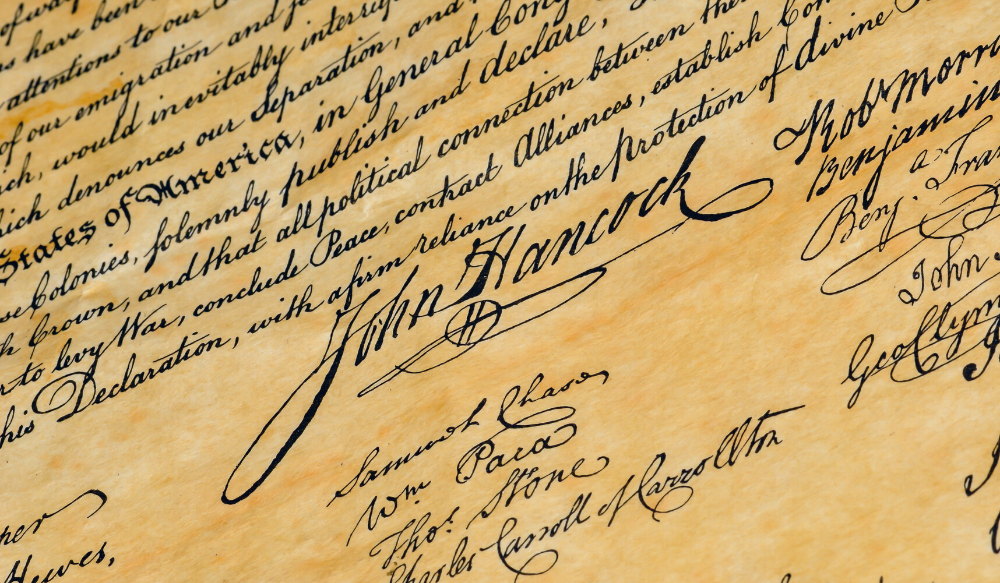 of way
s have been
attentions to our
of our emigration and
ch, would inevitably interrup
hich denounces our Separation, and
States of America, in General Cong
se Colonies, solemnly publish and declare,
h Crown, and that all political connection between the
r to levy War, conclude Peace, contract Alliances, establish Com
his Declaration, with a firm reliance on the protection of divine
John Hancock
Samuel Chase
Wm Paca
Thos. Stone
Charles Carroll of Carrollton
Robt Morri
Benjamin
Benj. Fra
John
Geo Clym
Hewes,